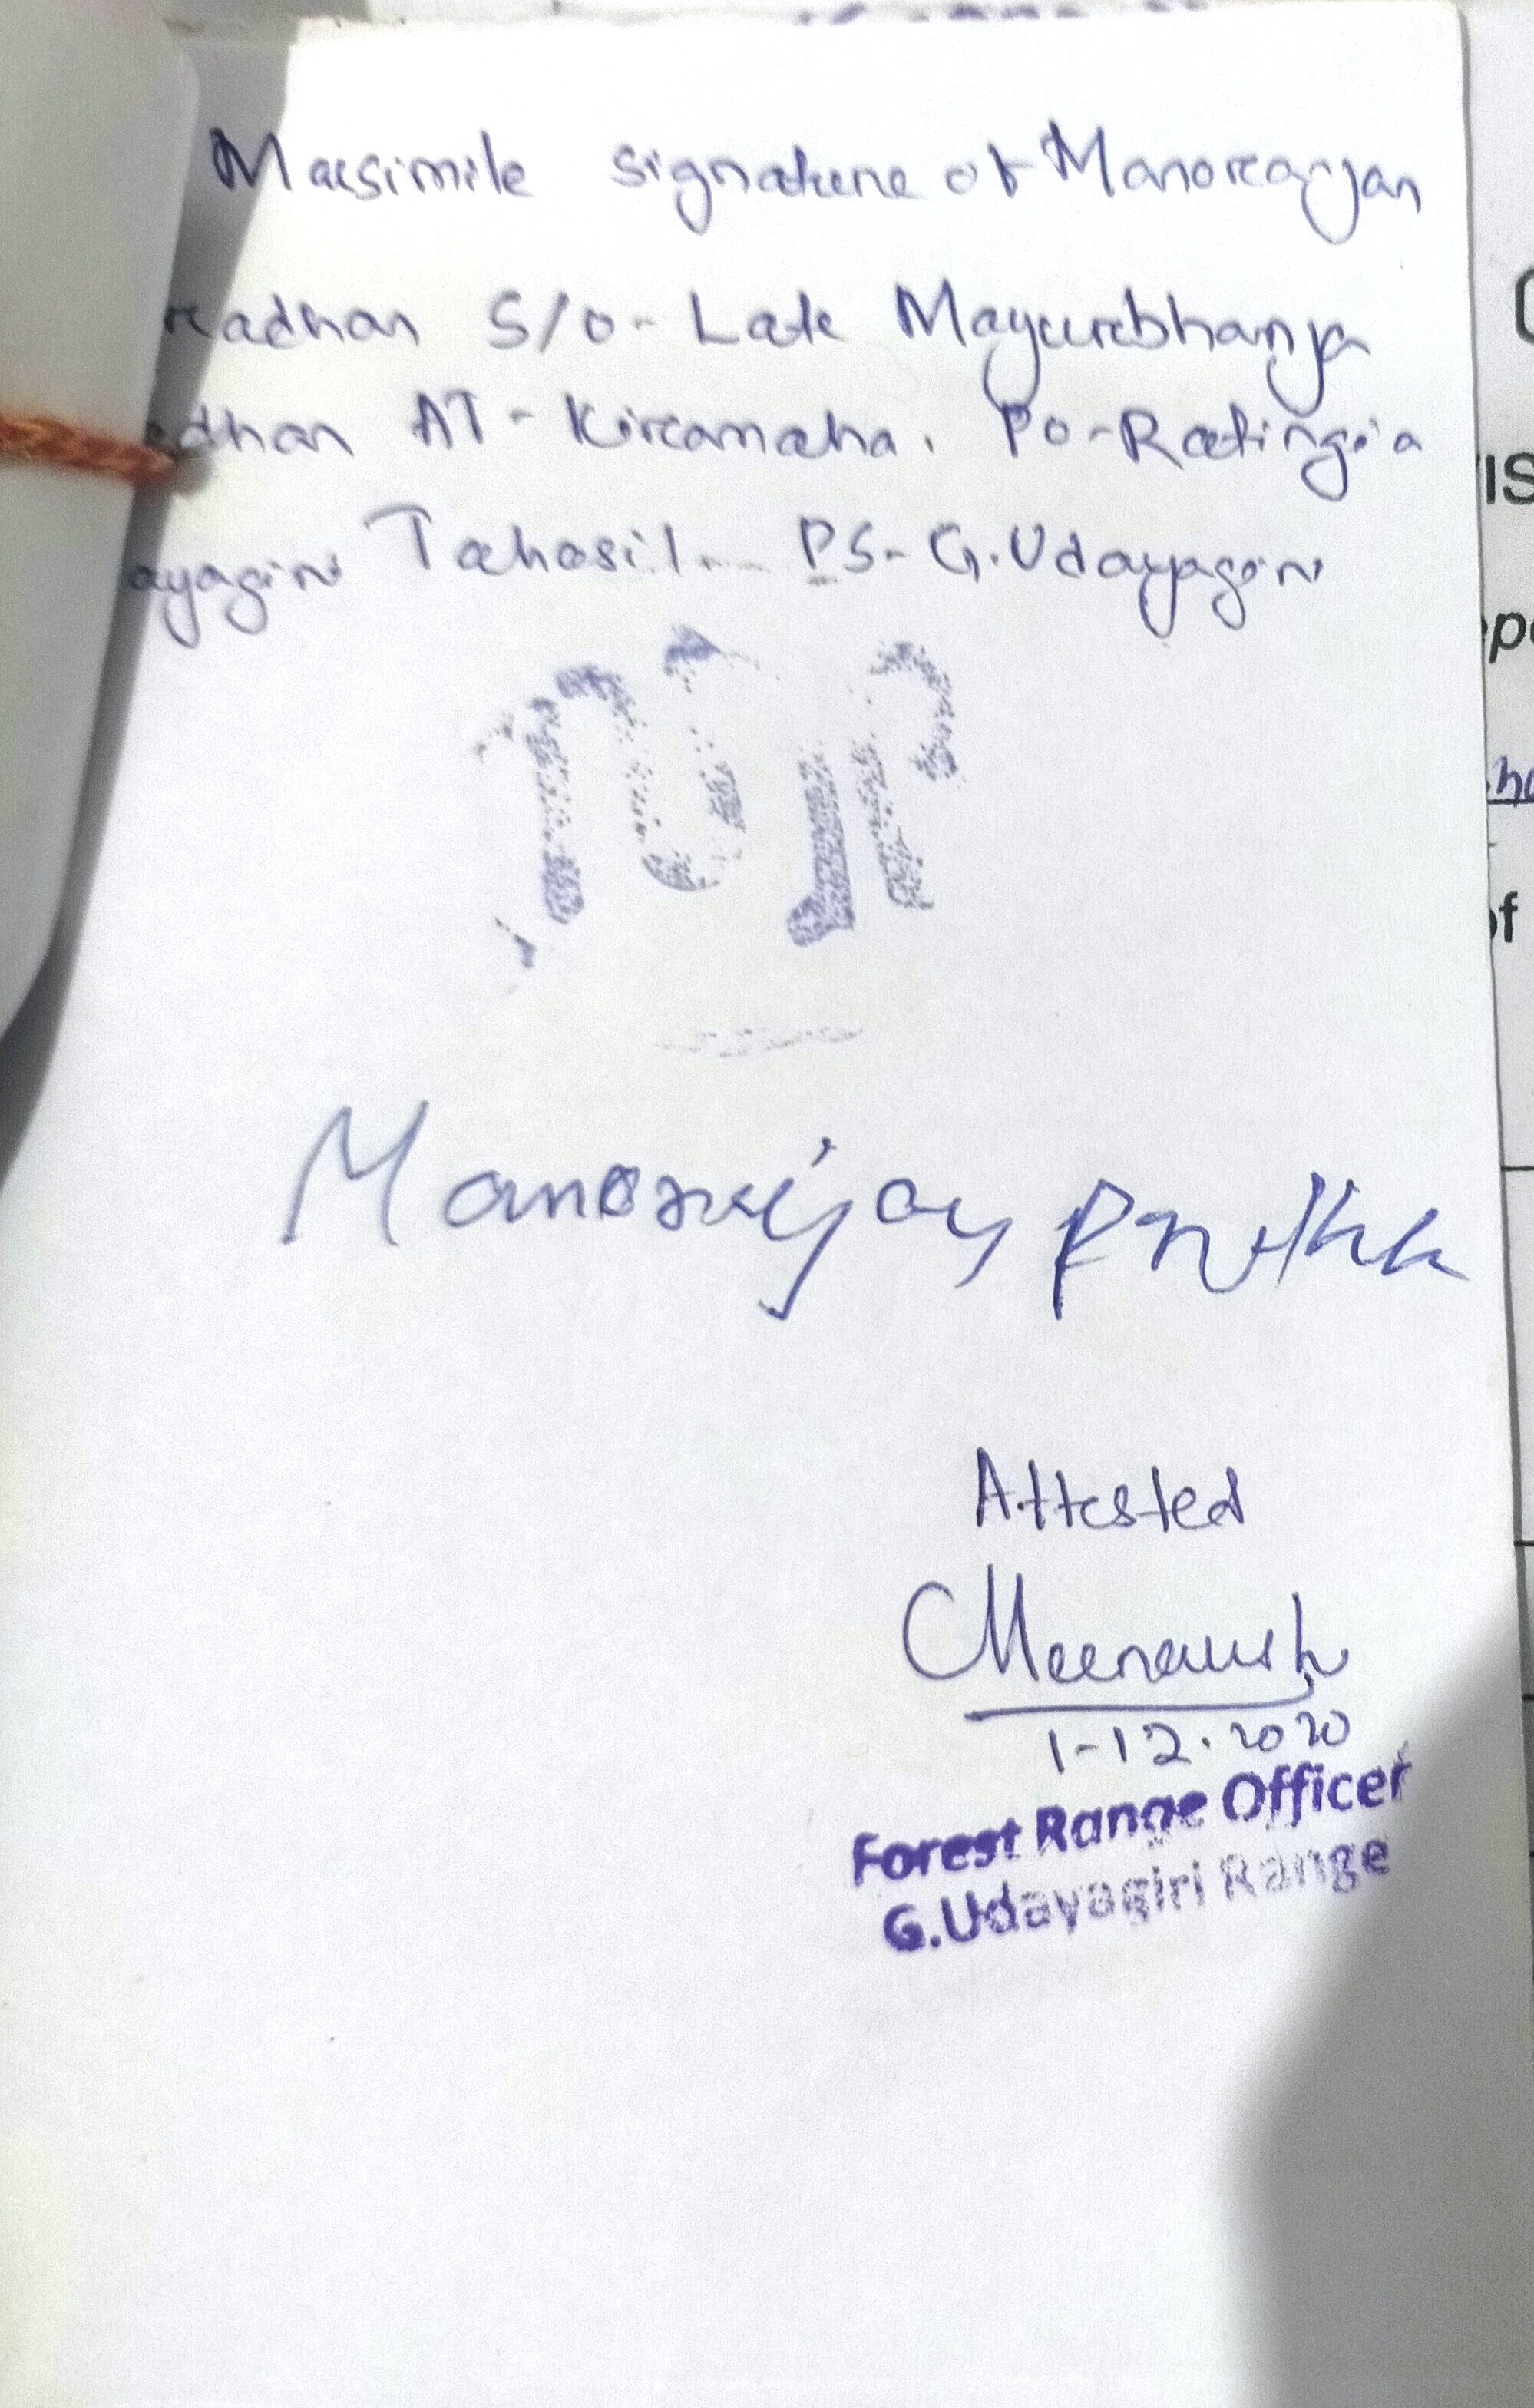 Macsimile signature of Manoranjan
radhan S/o- Late Mayurbhanja
adhan AT- Kiramaha. Po- Ratingia
ayagiri Tahasil PS- G. Udayagiri
Manoranjan
Attested
1-12.2020
Forest Range Officer
G.Udayagiri Range
of